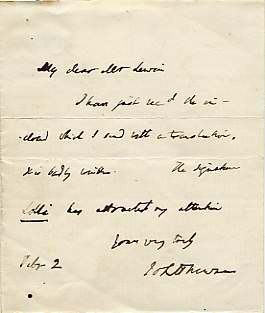 My dear Mr Lewin
I have just rec d the in-
closed which I send with a translation.
It is badly written. The signature
Lolli has attracted my attention
Yours very truly
Feby 2
John H Newman